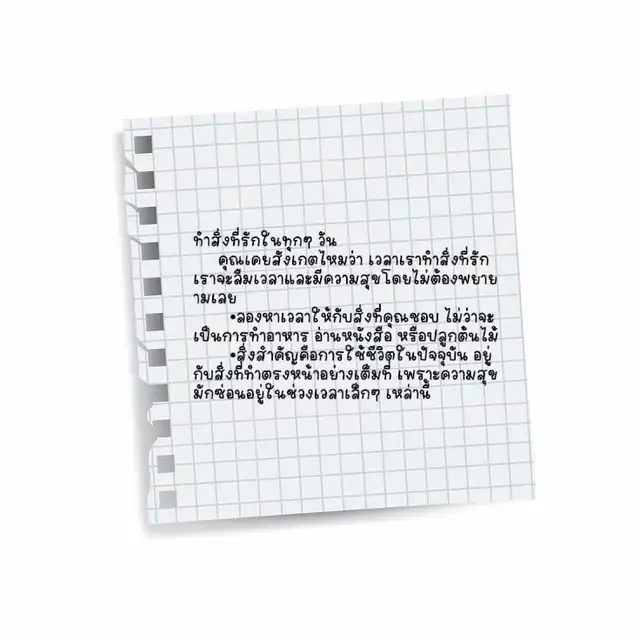 ทำสิ่งที่รักในทุกๆ วัน
คุณเคยสังเกตไหมว่า เวลาเราทำสิ่งที่รัก
เราจะลืมเวลาและมีความสุขโดยไม่ต้องพยาย
ามเลย
•ลองหาเวลาให้กับสิ่งที่คุณชอบ ไม่ว่าจะ
เป็นการทำอาหาร อ่านหนังสือ หรือปลูกต้นไม้
•สิ่งสำคัญคือการใช้ชีวิตในปัจจุบัน อยู่
กับสิ่งที่ทำตรงหน้าอย่างเต็มที่ เพราะความสุข
มักซ่อนอยู่ในช่วงเวลาเล็กๆ เหล่านี้